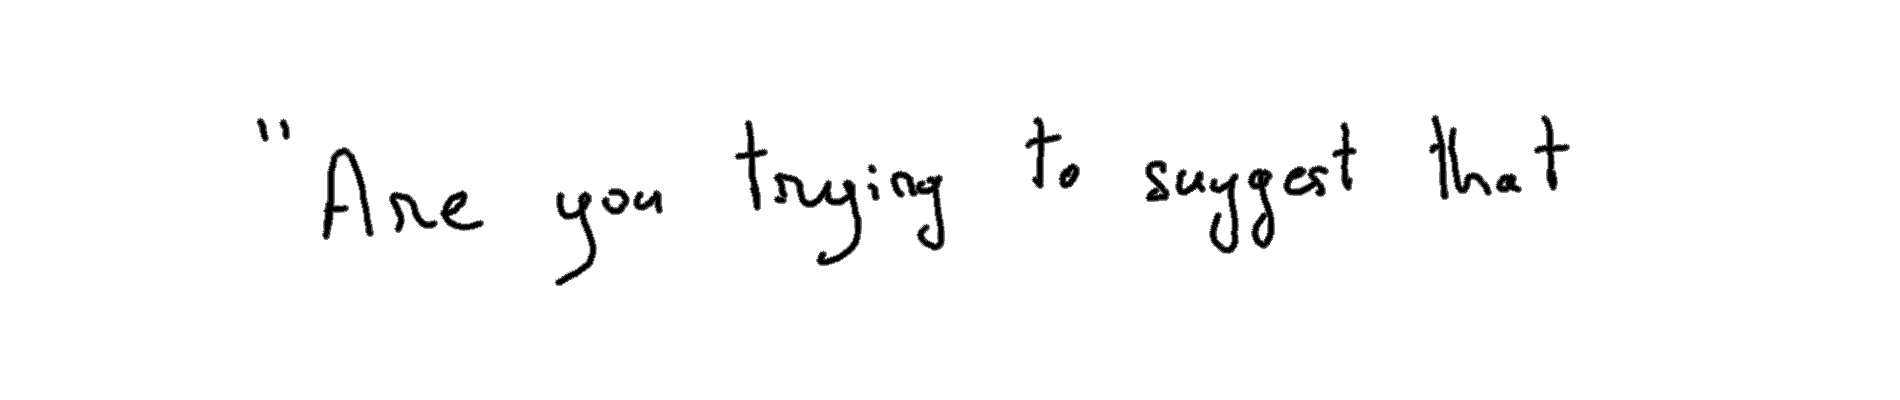 "Are you trying to suggest that